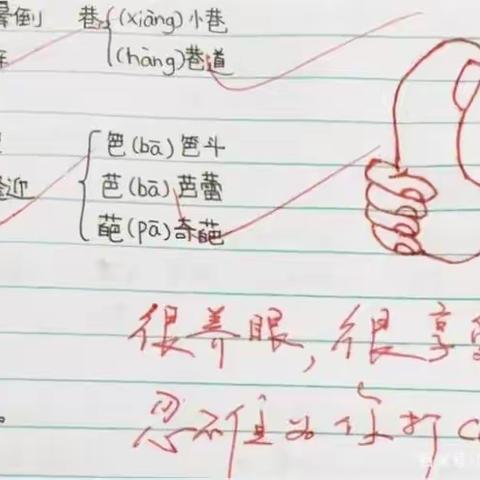 晕倒 巷 (xiàng)小巷
(hàng)巷道
笆(bā)笆斗
芭(bā)芭蕾
迎
葩(pā)奇葩
很养眼,很享
忍不住为你打c